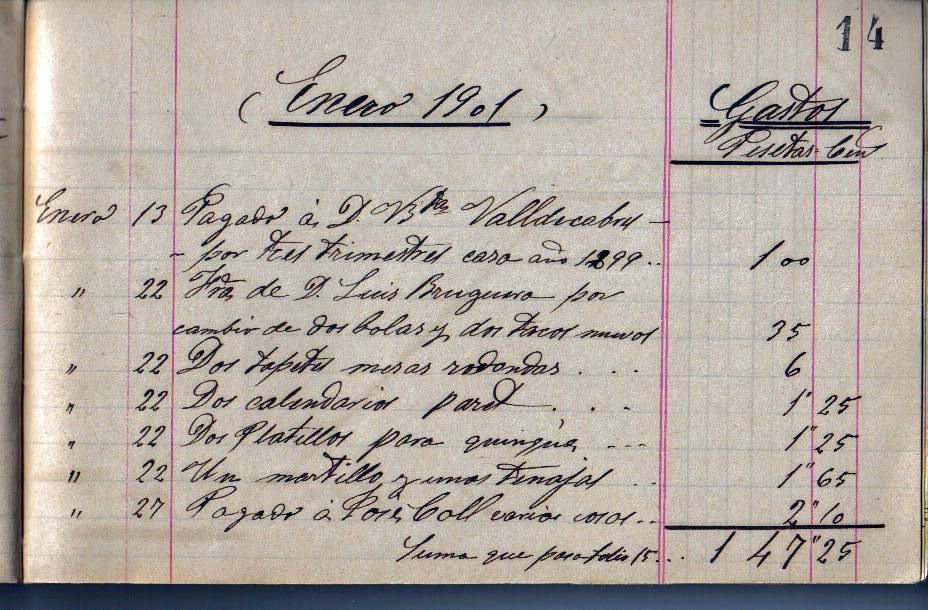 14
( Enero 1901 )
Gastos
Pesetas Cen
Enero 13 Pagado á D. Valldecabres -
- por tres trimestres casa año 1899 .. 100
" 22 Fra de D. Luis Bruguera por
cambio de dos bolas y dos tacos nuevos 35
" 22 Dos tapetes mesas redondas . . . 6
" 22 Dos calendarios paret . . . 1" 25
" 22 Dos Platillos para quinqué, --- 1" 25
" 22 Un martillo, y unas tenajas .. 1" 65
" 27 Pagado á José Coll varias cosas .. 2" 10
Suma que pasa folio 15 ... 1 4 7" 25